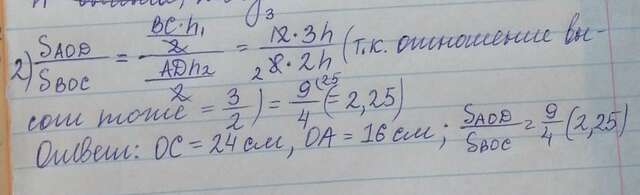 2) S_AOD / S_BOC = (BC·h₁ / 2) / (ADh₂ / 2) = 12·3h / 8·2h (т.к. отношение вы-
3
2
сот тоже = 3/2) = 9/4 (= 2,25)
Ответ: OC = 24 см, OA = 16 см; S_AOD / S_BOC = 9/4 (2,25)